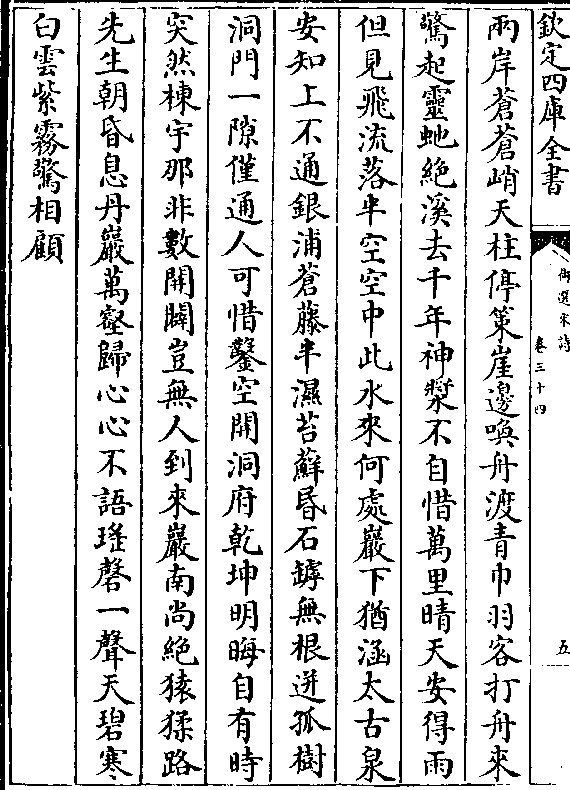 欽定四庫全書
御選宋詩
卷三十四
五
兩岸蒼蒼峭天柱停策崖邊喚舟渡青巾羽客打舟來
驚起靈虵絶溪去千年神漿不自惜萬里晴天安得雨
但見飛流落半空空中此水來何處巖下猶涵太古泉
安知上不通銀浦蒼藤半濕苔蘚昬石罅無根迸孤樹
洞門一隙僅通人可惜鑿空開洞府乾坤明晦自有時
突然棟宇那非數開闢豈無人到來巖南尚絶猿猱路
先生朝昏息丹巖萬壑歸心心不語瑤磬一聲天碧寒
白雲紫霧驚相顧